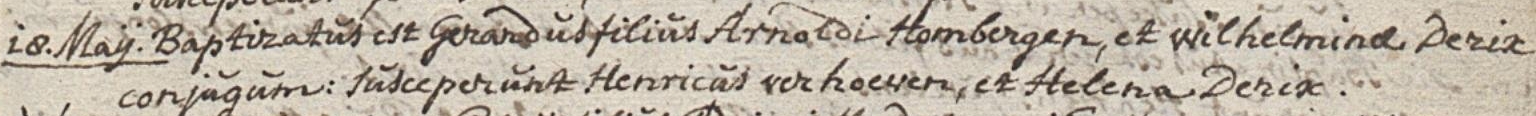 18. Maij. Baptizatus est Gerardus filius Arnoldi Hombergen, et Wilhelminæ Derix
conjugum: susceperunt Henricus verhoeven, et Helena Derix.